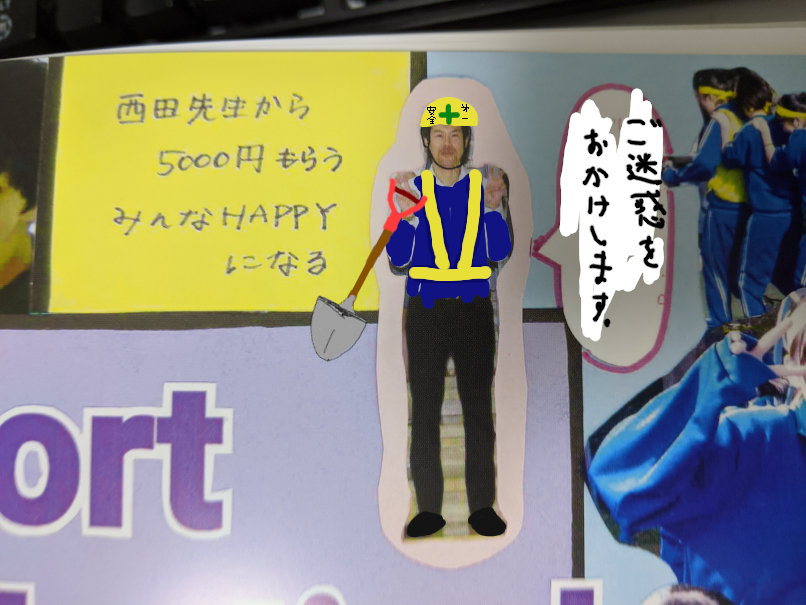 西田先生から
5000円もらう
みんなHAPPY
になる
安全 第一
ご迷惑を
おかけします。
ort